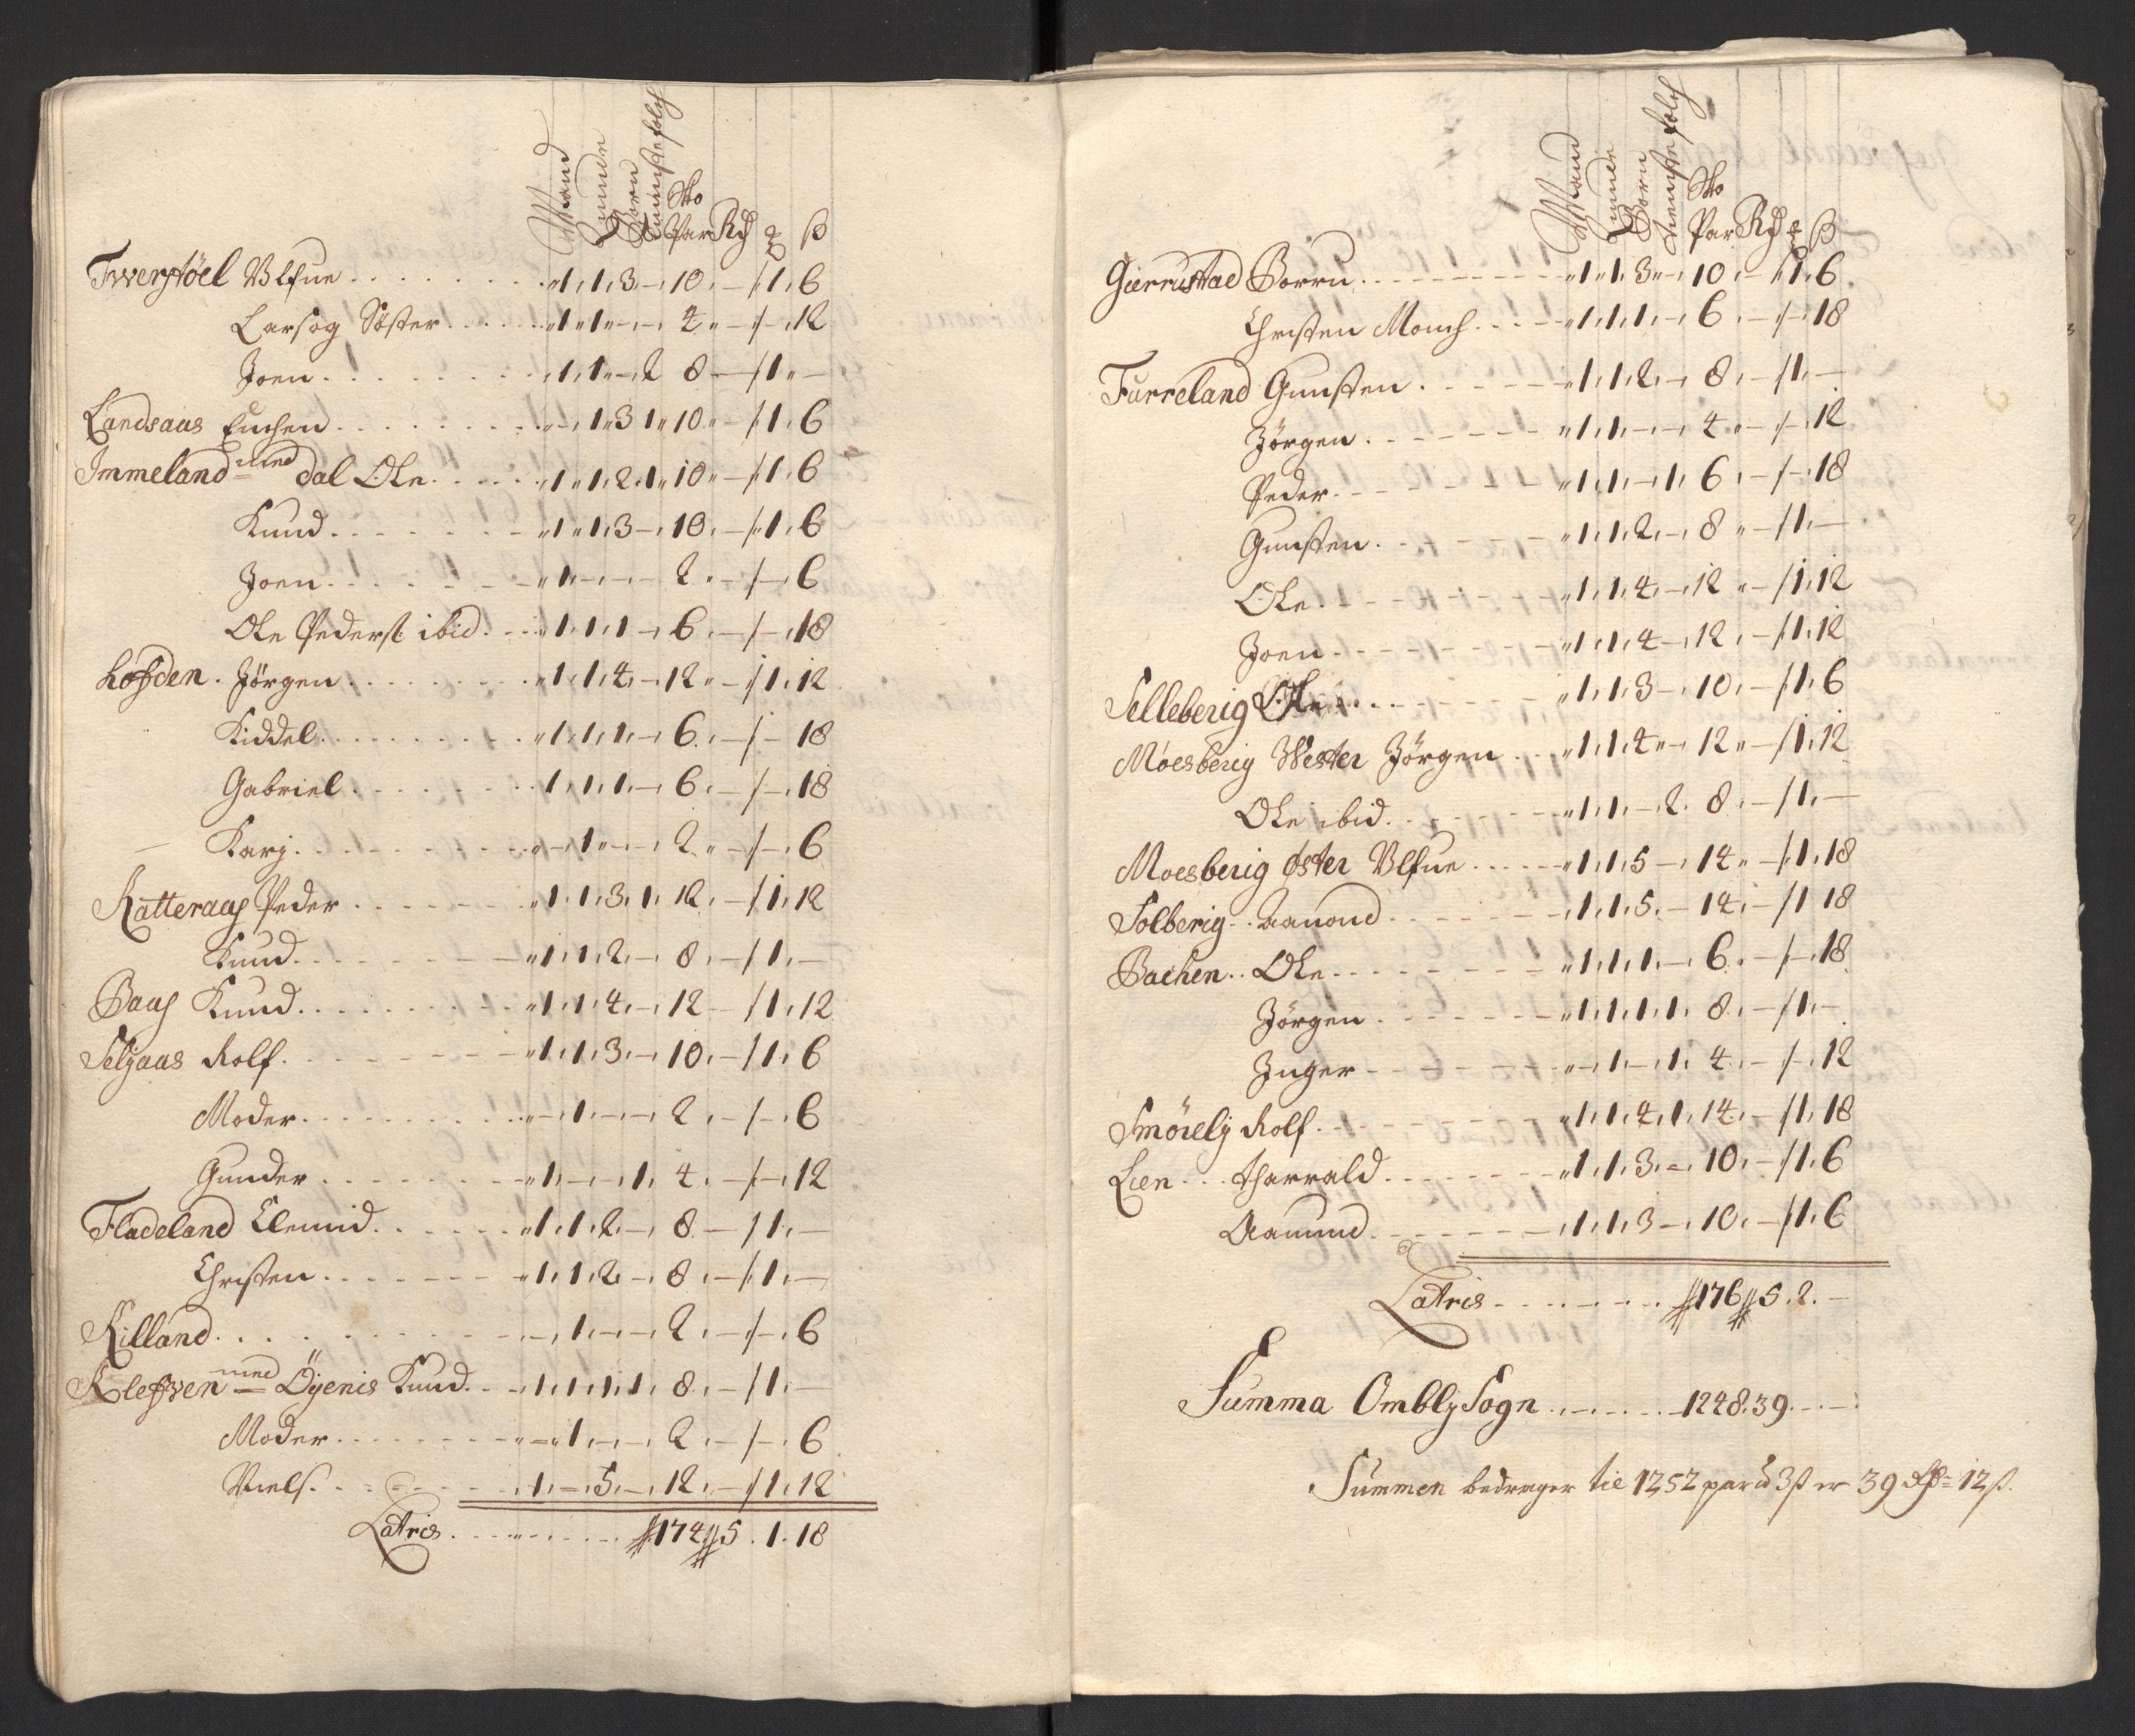 Mand Quinde Börn Tieniste folch Sko Par Rdr ß
Tverstöel Ulfue . . . . 1. 1. 3. – 10. – / 1. 6
Lars og Söster . . . . 1. 1. – – 4. – / – 12
Joen . . . . 1. 1. – 2 8 – / 1. –
Landsaas . . . . – 1. 3 1. 10. – / 1. 6
Immeland med dal Ole . . . . 1. 1. 2. 1. 10. – / 1. 6
Knud . . . . 1. 1. 3 – 10. – / 1. 6
Joen . . . . 1. – – – 2. – / – 6
Ole Peders: ibid . . . . 1. 1. 1 – 6. – / – 18
Lofsden . Jörgen . . . . 1. 1. 4. – 12. – / 1. 12
Kiddel . . . . 1. 1. 1. – 6. – / – 18
Gabriel . . . . 1. 1. 1. – 6. – / – 18
Karj . . . . – 1. – – 2. – / – 6
Katteraas Peder . . . . 1. 1. 3. 1. 12. – / 1. 12
Knud . . . . 1. 1. 2. – 8. – / 1. –
Baas Knud . . . . 1. 1. 4. – 12 – / 1. 12
Seljaas Rolf . . . . 1. 1. 3. – 10. – / 1. 6
Moder . . . . – 1. – – 2. – / – 6
Gunder . . . . 1. – – 1. 4. – / – 12
Fladeland Clemid . . . . 1. 1. 2 – 8. – / 1. –
Christen . . . . 1. 1. 2. – 8. – / 1. –
Killand . . . . – 1. – – 2. – / – 6
Klefven med Öyenis Knud . . . . 1. 1. 1. 1. 8. – / 1. –
Moder . . . . – 1. – – 2. – / – 6
Niels . . . . 1. – 5. – 12. – / 1. 12
Latris . . . . 174 5 . 1 . 18
Mand Quinde Börn tieniste folch Sko Par Rdr ß
Gierrustad Borru . . . . 1. 1. 3. – 10. – / 1. 6
Christen Monch . . . . 1. 1. 1. – 6. – / – 18
Furreland Gunsten . . . . 1. 1. 2. – 8. – / 1. –
Jörgen . . . . 1. 1. – – 4. – / – 12
Peder . . . . 1. 1. – 1. 6. – / – 18
Gunsten . . . . 1. 1. 2. – 8. – / 1. –
Ole . . . . 1. 1. 4. – 12. – / 1. 12
Joen . . . . 1. 1. 4 – 12. – / 1. 12
Selleberig Ole . . . . 1. 1. 3 – 10. – / 1. 6
Moesberig Wester Jörgen . . 1. 1. 4. – 12. – / 1. 12
Ole ibid . . . . 1. 1. – 2. 8. – / 1. –
Moesberig öster Ulfue . . . . 1. 1. 5 – 14. – / 1. 18
Solberig . . Aanond . . . . 1. 1. 5. – 14. – / 1 18
Bachen . . Ole . . . . 1. 1. 1. – 6. – / – 18
Jörgen . . . . 1. 1. 1. 1. 8. – / 1. –
Inger . . . . – 1. – 1. 4. – / – 12
Smörelj Rolf . . . . 1. 1. 4. 1. 14. – / 1. 18
Lien . . . tharrald . . . . 1. 1. 3. – 10. – / 1. 6
Aamund . . . . 1. 1. 3 – 10. – / 1. 6
Latris . . . . 176 5 . 2 . –
Summa Omblj Sogn . . . . 1248 . 39 . . –
Summen bedrager til 1252 par á 3 ß er 39 Rdr = 12 ß.